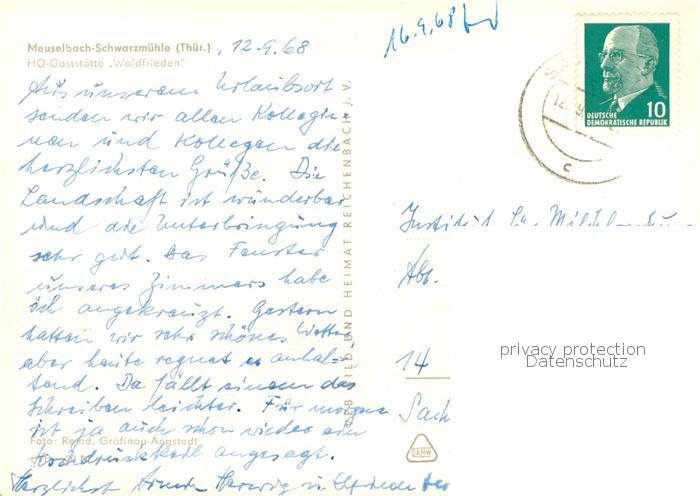 Meuselbach-Schwarzmühle (Thür.), 12.9.68
HO-Gaststätte „Waldfrieden"
Aus unserem Urlaubsort
senden wir allen Kollegin-
nen und Kollegen die
herzlichsten Grüße. Die
Landschaft ist wunderbar
und die Unterbringung
sehr gut. Das Fenster
unseres Zimmers habe
ich angekreuzt. Gestern
hatten wir sehr schönes Wetter,
aber heute regnet es anhal-
tend. Da fällt einem das
Schreiben leichter. Für morgen
ist ja auch schon wieder ein
Foto: Remd, Gräfinau-Angstedt
Hochdruckkeil angesagt.
Herzlichst
VEB BILD UND HEIMAT REICHENBACH i. V.
16.9.68
10
DEUTSCHE
DEMOKRATISCHE REPUBLIK
c
Institut für
Abt.
14
privacy protection
Datenschutz